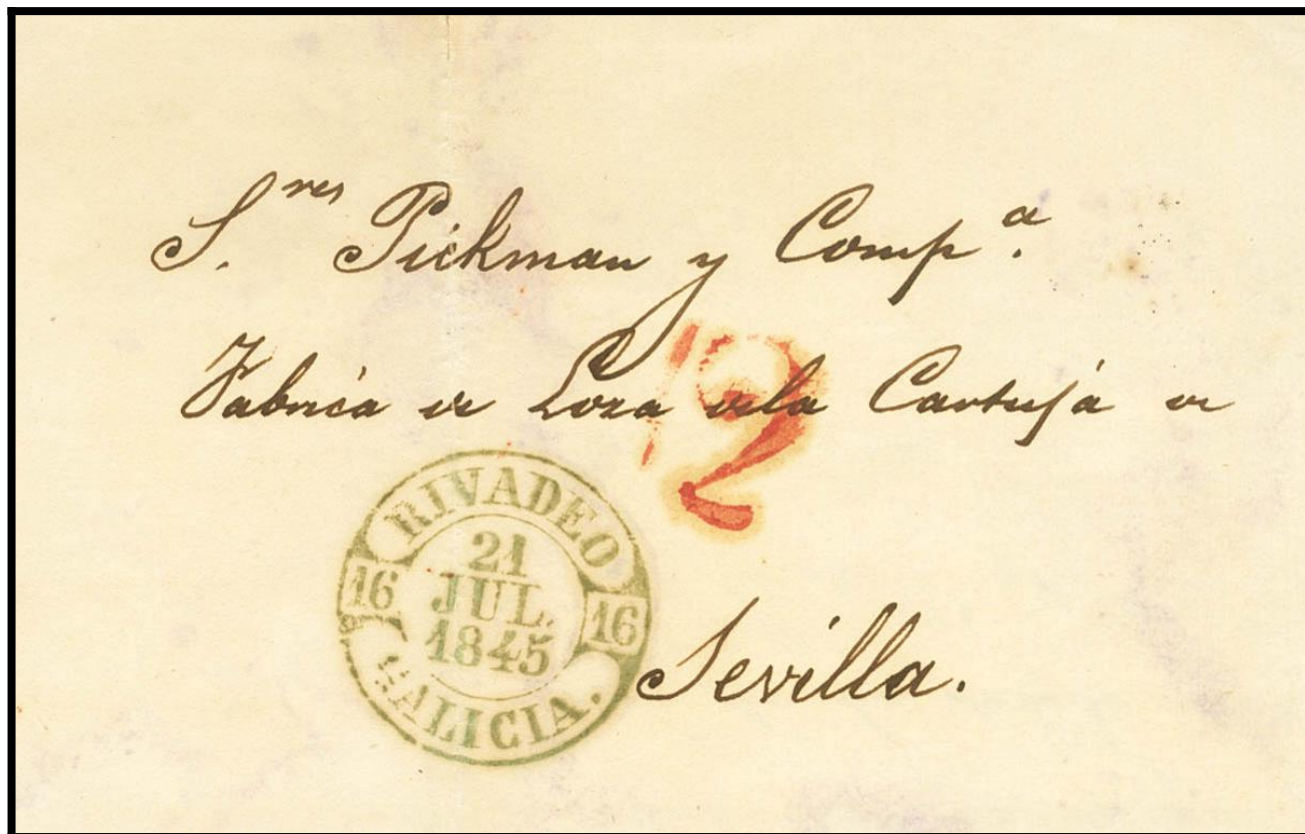 S.res Pickman y Comp.a
Fabrica de Loza dela Cartuja de
12
RIVADEO
16
21
JUL.
1845
16
GALICIA.
Sevilla.